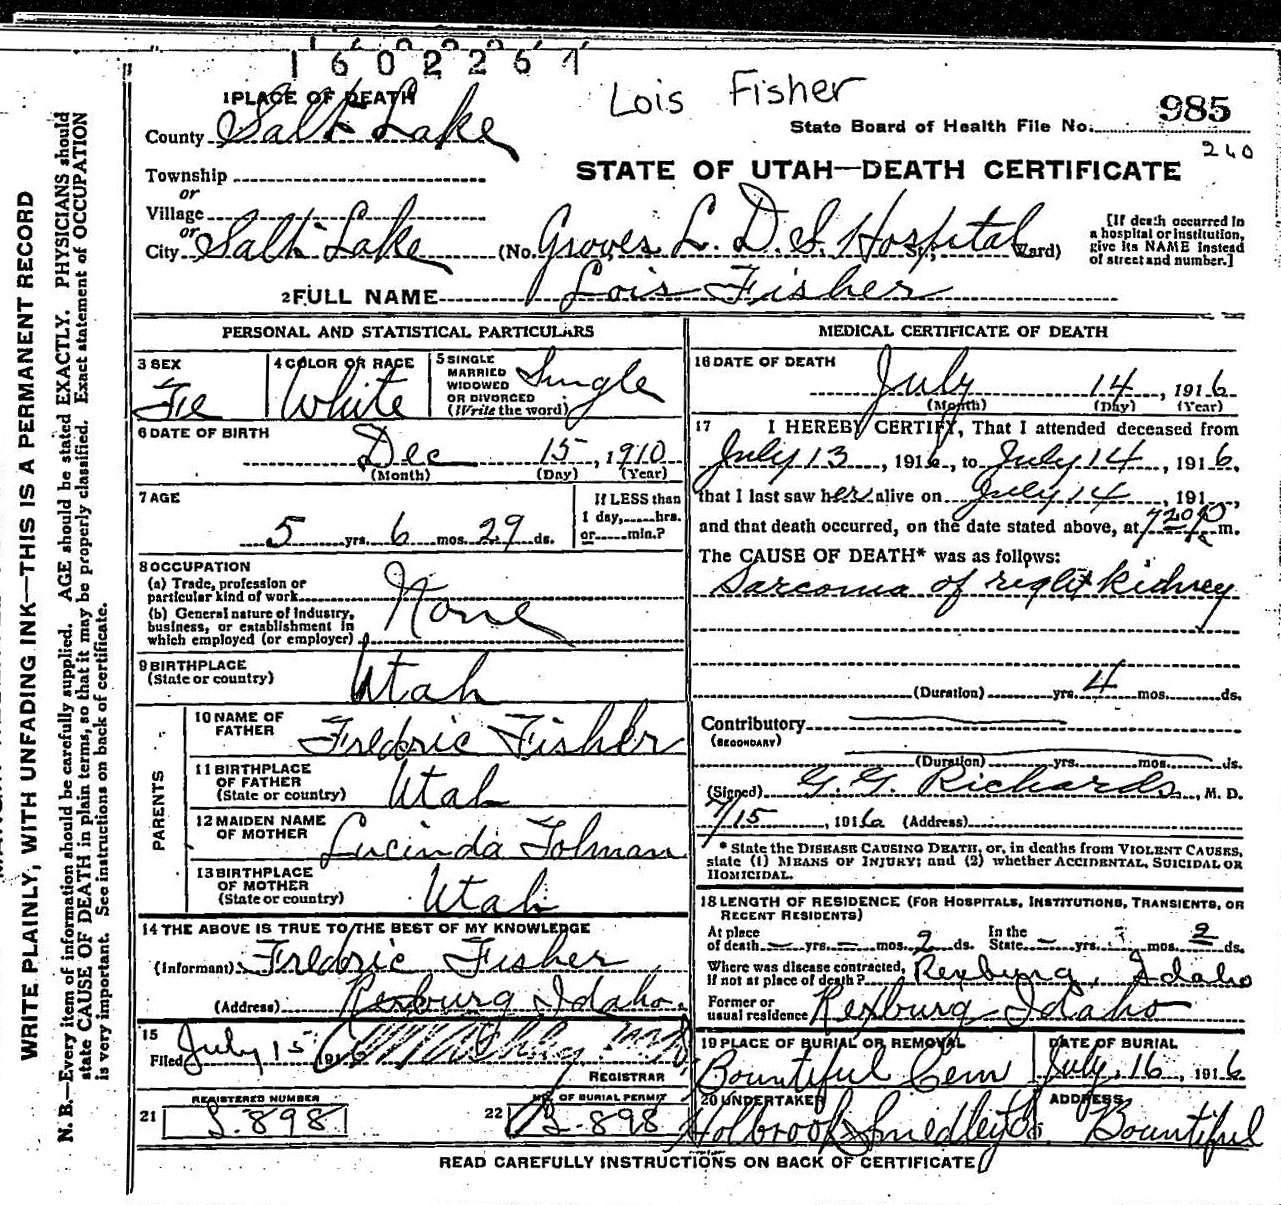 1602261
Lois Fisher
1 PLACE OF DEATH
County Salt Lake
State Board of Health File No. 985
240
Township
or
Village
or
City Salt Lake (No. Groves L. D. S. Hospital St.; Ward)
STATE OF UTAH—DEATH CERTIFICATE
[If death occurred in
a hospital or institution,
give its NAME instead
of street and number.]
2 FULL NAME Lois Fisher
PERSONAL AND STATISTICAL PARTICULARS
3 SEX
Fe
4 COLOR OR RACE
White
5 SINGLE
MARRIED
WIDOWED
OR DIVORCED
(Write the word)
Single
6 DATE OF BIRTH
Dec 15, 1910
(Month) (Day) (Year)
7 AGE
5 yrs. 6 mos. 29 ds.
If LESS than
1 day,.....hrs.
or.....min.?
8 OCCUPATION
(a) Trade, profession or
particular kind of work
(b) General nature of industry,
business, or establishment in
which employed (or employer)
None
9 BIRTHPLACE
(State or country)
Utah
PARENTS
10 NAME OF
FATHER
Fredric Fisher
11 BIRTHPLACE
OF FATHER
(State or country)
Utah
12 MAIDEN NAME
OF MOTHER
Lucinda Tolman
13 BIRTHPLACE
OF MOTHER
(State or country)
Utah
14 THE ABOVE IS TRUE TO THE BEST OF MY KNOWLEDGE
(Informant) Fredric Fisher
(Address) Rexburg Idaho.
15
Filed July 15 1916
REGISTRAR
REGISTERED NUMBER
21 S.898
NO. OF BURIAL PERMIT
22 S.898
MEDICAL CERTIFICATE OF DEATH
16 DATE OF DEATH
July 14, 1916
(Month) (Day) (Year)
17 I HEREBY CERTIFY, That I attended deceased from
July 13, 1916, to July 14, 1916,
that I last saw her alive on July 14, 191
and that death occurred, on the date stated above, at 7 20 P m.
The CAUSE OF DEATH* was as follows:
Sarcoma of right kidney
(Duration) yrs. 4 mos. ds.
Contributory
(SECONDARY)
(Duration) yrs. mos. ds.
(Signed) G. G. Richards, M. D.
7/15, 1916 (Address)
* State the DISEASE CAUSING DEATH, or, in deaths from VIOLENT CAUSES,
state (1) MEANS OF INJURY; and (2) whether ACCIDENTAL, SUICIDAL OR
HOMICIDAL.
18 LENGTH OF RESIDENCE (FOR HOSPITALS, INSTITUTIONS, TRANSIENTS, OR
RECENT RESIDENTS)
At place
of death - yrs. - mos. 2 ds.
In the
State - yrs. mos. 2 ds.
Where was disease contracted,
if not at place of death? Rexburg, Idaho
Former or
usual residence Rexburg Idaho
19 PLACE OF BURIAL OR REMOVAL
Bountiful Cem
DATE OF BURIAL
July 16, 1916
20 UNDERTAKER
Holbrook & Smedley Co.
ADDRESS
Bountiful
READ CAREFULLY INSTRUCTIONS ON BACK OF CERTIFICATE
WRITE PLAINLY, WITH UNFADING INK—THIS IS A PERMANENT RECORD
N. B.—Every item of information should be carefully supplied. AGE should be stated EXACTLY. PHYSICIANS should
state CAUSE OF DEATH in plain terms, so that it may be properly classified. Exact statement of OCCUPATION
is very important. See instructions on back of certificate.